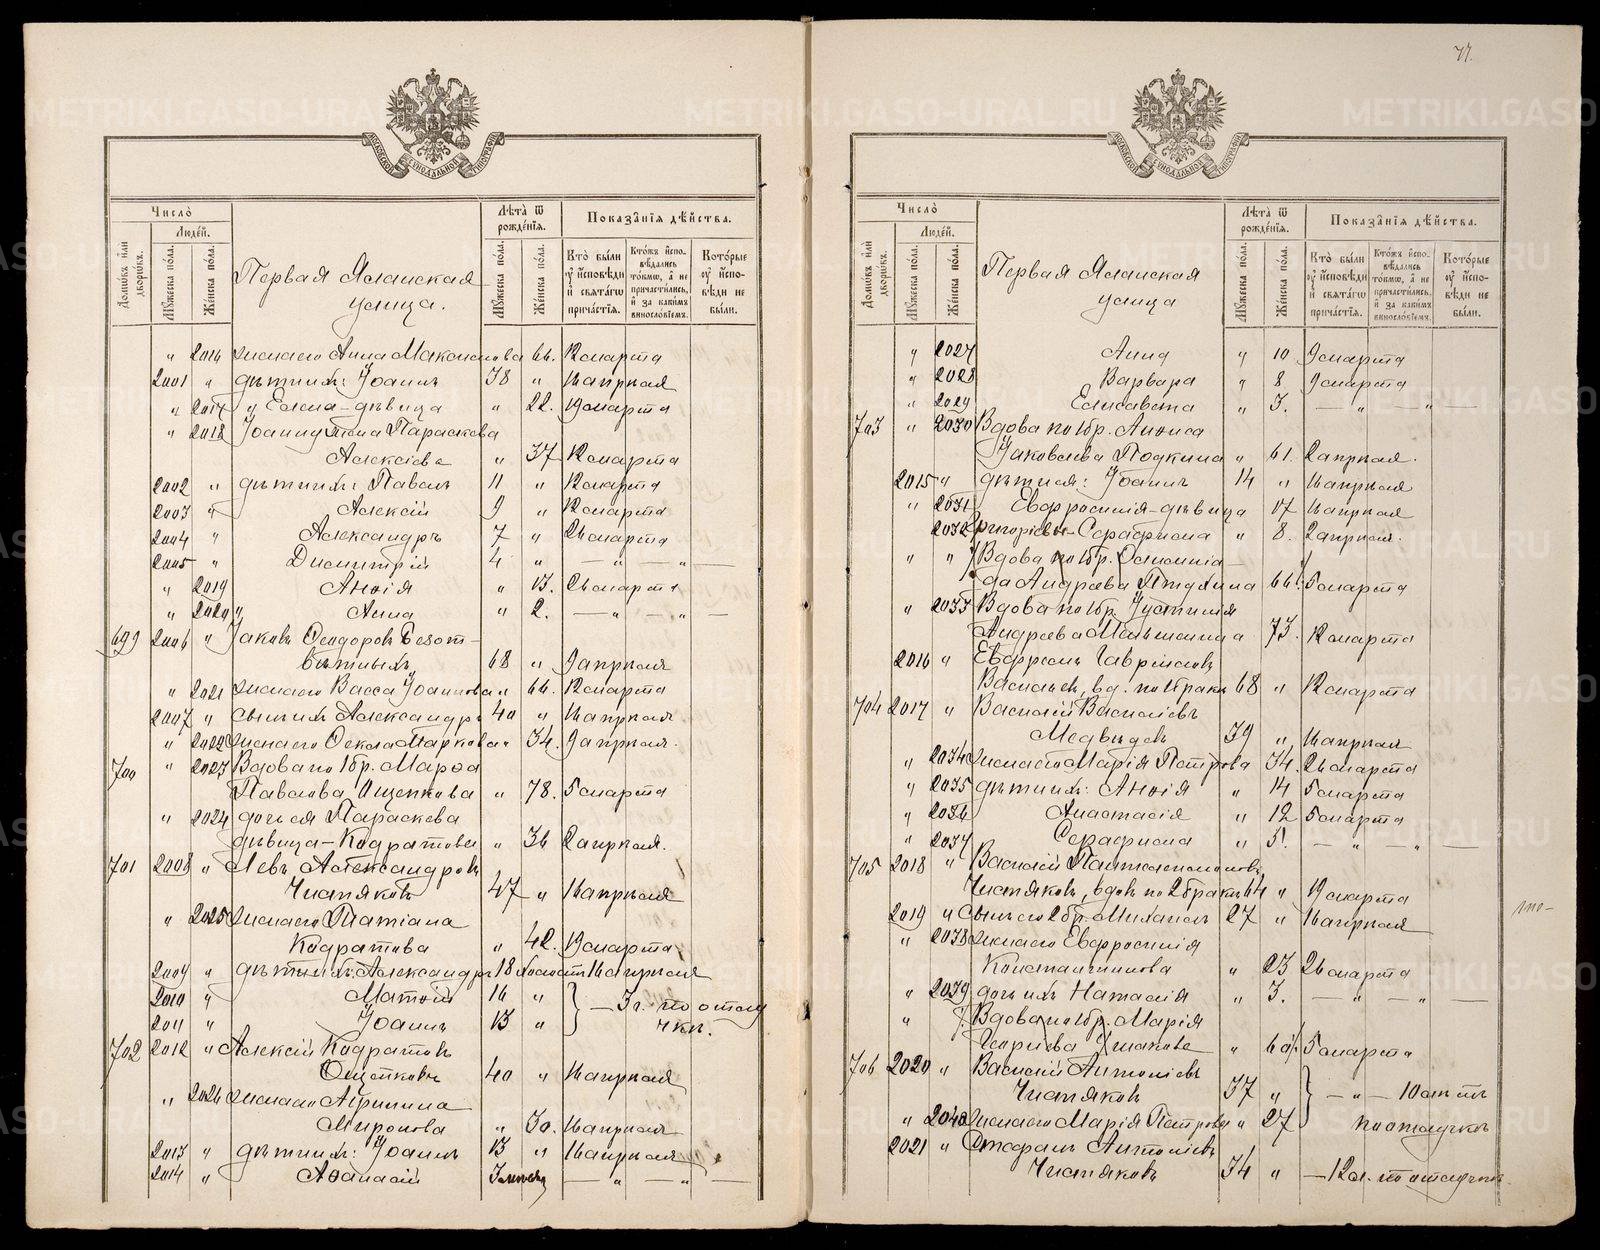 77.
Число̀
Людей.
Домѡвъ и҆лѝ дворѡвъ.
Мꙋжеска пола.
Женска пола.
Первая Яланская
улица.
Лѣта̀ ѿ рожденїѧ.
Мꙋжеска пола.
Женска пола.
Показанїѧ дѣйства.
Кто̀ были оу҆ и҆сповѣди и҆ свѧтагѡ причастїѧ.
Ктожъ и҆сповѣдались токмѡ, а҆ не причастились, и҆ за какимъ винословїемъ.
Которые оу҆ и҆сповѣди не были.
„ 2016 жена его Анна Максимова „ 66. 12 марта
2001 „ дѣти ихъ: Іоаннъ 38 „ 16 апрѣля
„ 2017 „ Елена - дѣвица „ 22. 19 марта
„ 2018 Іоанну жена Параскева
Алексіева „ 37 12 марта
2002 „ дѣти ихъ: Павелъ 11 „ 12 марта
2003 „ Алексій 9 „ 12 марта
2004 „ Александръ 7 „ 26 марта
2005 „ Димитрій 4 „ — „ — „ —
„ 2019 Анѳія „ 13. 26 марта
„ 2020 „ Анна „ 2. — „ — „ —
699 2006 „ Іаковъ Ѳеодоровъ Безот-
вѣтныхъ 68 „ 9 апрѣля
„ 2021 жена его Васса Іоаннова „ 66. 12 марта
2007 „ сынъ ихъ Александръ 40 „ 16 апрѣля
„ 2022 жена его Ѳекла Маркова „ 34. 9 апрѣля.
700 „ 2023 Вдова по 1 бр. Марѳа
Павлова Ощепкова „ 78. 5 марта
„ 2024 дочь ея Параскева
дѣвица - Кодратова „ 36 2 апрѣля.
701 2008 „ Левъ Александровъ
Чистяковъ 47 „ 16 апрѣля
„ 2025 жена его Татіана
Кодратова „ 42. 19 марта
2009 „ дѣти ихъ: Александръ 18 холост 16 апрѣля
2010 „ Матѳій 16 „ — 3 г. по отлу
2011 „ Іоаннъ 13 „ чкѣ.
702 2012 „ Алексій Кодратовъ
Ощепковъ 40 „ 16 апрѣля
„ 2026 жена его Агрипина
Миронова „ 30. 16 апрѣля
2013 „ дѣти ихъ: Іоаннъ 13 „ 16 апрѣля
2014 „ Аѳанасій — „ — „ —
Число̀
Людей.
Домѡвъ и҆лѝ дворѡвъ.
Мꙋжеска пола.
Женска пола.
Первая Яланская
улица
Лѣта̀ ѿ рожденїѧ.
Мꙋжеска пола.
Женска пола.
Показанїѧ дѣйства.
Кто̀ были оу҆ и҆сповѣди и҆ свѧтагѡ причастїѧ.
Ктожъ и҆сповѣдались токмѡ, а҆ не причастились, и҆ за какимъ винословїемъ.
Которые оу҆ и҆сповѣди не были.
„ 2027 Анна „ 10 9 марта
„ 2028 Варвара „ 8. 9 марта
„ 2029 Елисавета „ 3. — „ — „ —
703 „ 2030 Вдова по 1 бр. Анфиса
Іаковлева Подкина „ 61. 2 апрѣля.
2015 „ дѣти ея: Іоаннъ 14 „ 16 апрѣля
„ 2031 Евфросинія - дѣвица 17 16 апрѣля
2032 Серафима „ 8. 2 апрѣля.
„ „ Вдова по 1 бр.
да Андреева 66. 5 марта
„ 2033 Вдова по 1 бр. Іустинія
Андреева Меньшенина 73. 12 марта
2016 „ Евфремъ Гавріиловъ
Васильев, вд. по 1 бракѣ 68 „ 12 марта
704 2017 „ Василій Василіевъ
Медвѣдевъ 39 „ 16 апрѣля
„ 2034 жена его Марія Петрова 34. 26 марта
„ 2035 дѣти ихъ: Анѳія „ 14 5 марта
„ 2036 Анастасія „ 12 5 марта
„ 2037 Серафима „ 5. — „ — „ —
705 2018 „ Василій Пантелеимоновъ
Чистяковъ, вдов. по 2 бракѣ 64 „ 19 марта
2019 „ Сынъ его 2 бр. Михаилъ 27 „ 16 апрѣля
„ 2038 жена его Евфросинія
Константинова „ 23 26 марта
„ 2039 дочь ихъ Наталія „ 3. — „ — „ —
„ Вдова по 1 бр. Марія
Ушакова „ 60 5 марта
706 2020 „ Василій Антоніевъ
Чистяковъ 37 „ — „ — 10 лѣтъ
„ 2040 жена его Марія Петрова „ 27 по отлучкѣ
2021 „ Стефанъ Антоніевъ
Чистяковъ 34 „ — 12 л. по отлучкѣ
METRIKI.GASO-URAL.RU